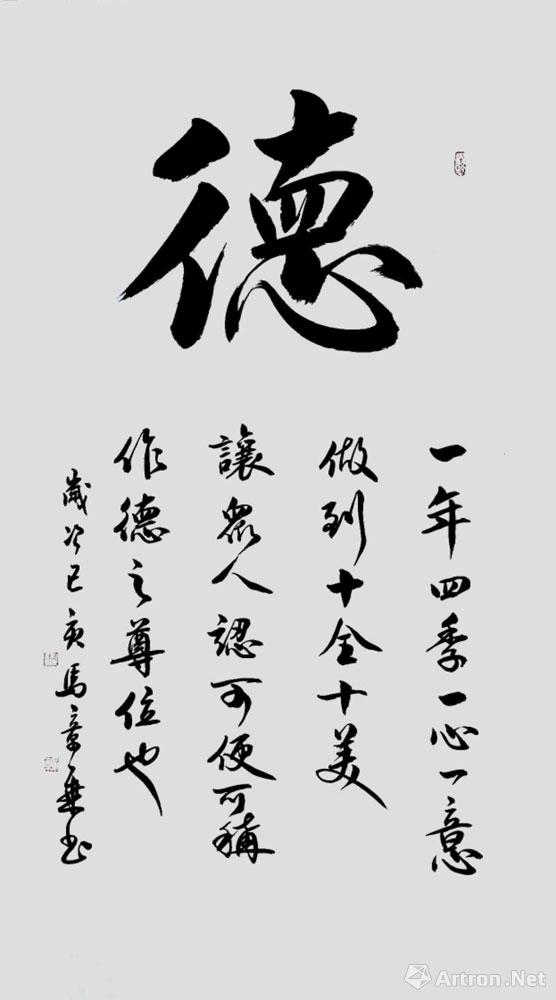 德
一年四季一心一意
做到十全十美
讓眾人認可便可稱
作德之尊位也
歲次己亥馬章乗书
Artron.Net